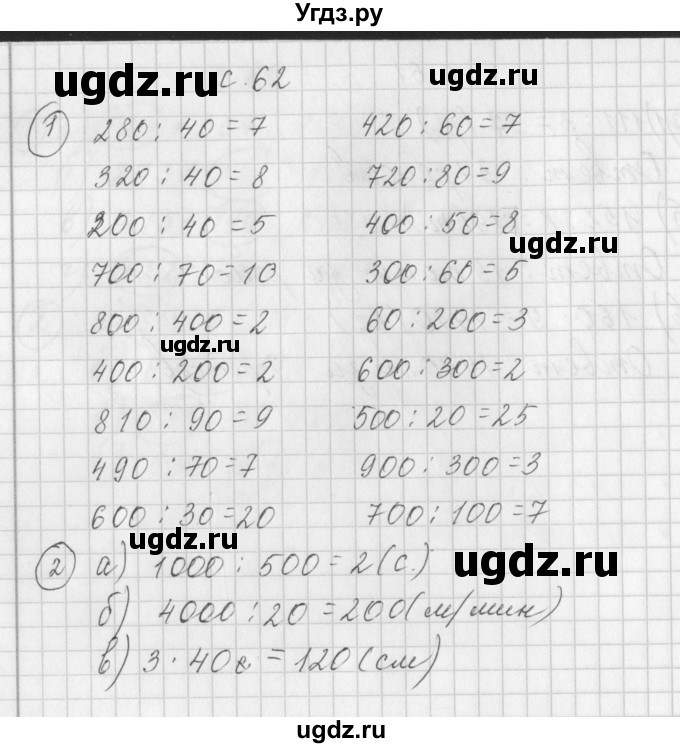 Угдз.ру
ugdz.ru с. 62 ugdz.ru
1 280 : 40 = 7 420 : 60 = 7
320 : 40 = 8 720 : 80 = 9
200 : 40 = 5 400 : 50 = 8
ugdz.ru
700 : 70 = 10 300 : 60 = 5
800 : 400 = 2 60 : 200 = 3
ugdz.ru
400 : 200 = 2 600 : 300 = 2
810 : 90 = 9 500 : 20 = 25
490 : 70 = 7 900 : 300 = 3
600 : 30 = 20 700 : 100 = 7
ugdz.ru
2 а) 1000 : 500 = 2 (с.) ugdz.ru
б) 4000 : 20 = 200 (м/мин)
в) 3 · 40 = 120 (см)
ugdz.ru
ugdz.ru